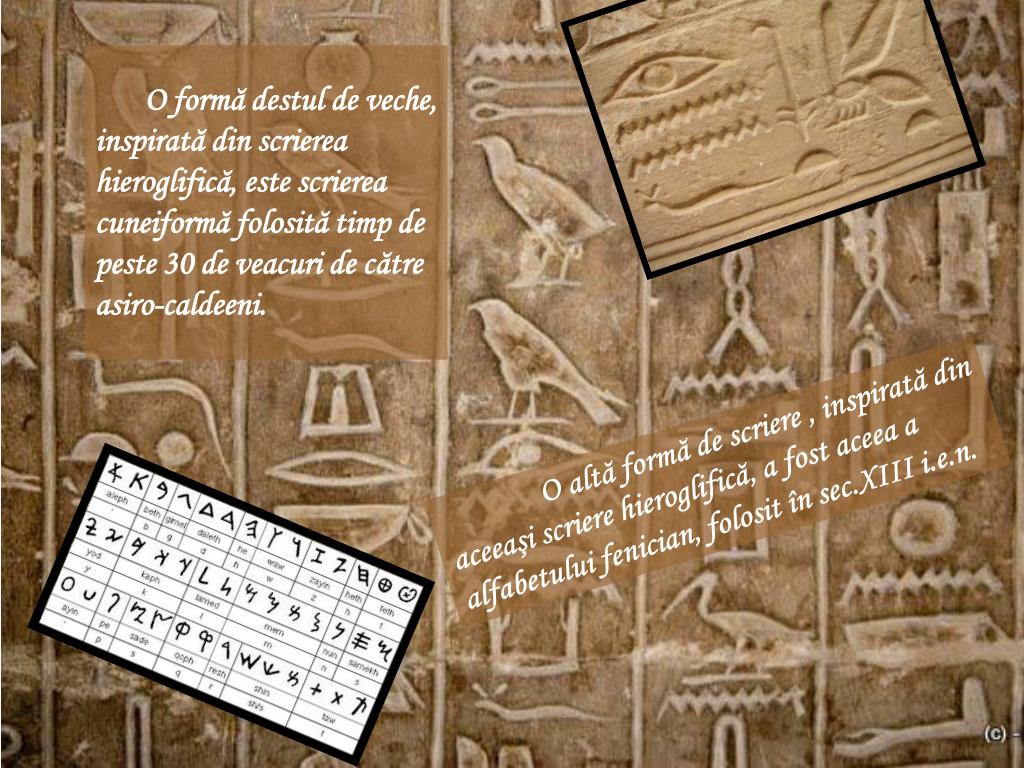 O formă destul de veche,
inspirată din scrierea
hieroglifică, este scrierea
cuneiformă folosită timp de
peste 30 de veacuri de către
asiro-caldeeni.
O altă formă de scriere , inspirată din
aceeaşi scriere hieroglifică, a fost aceea a
alfabetului fenician, folosit în sec.XIII i.e.n.
aleph beth gimel daleth he waw zayin heth teth
' b g d h w z h t
yod kaph lamed mem nun samekh
y k l m n s
ayin pe sade qoph resh shin taw
' p s q r sh/s t
(c) –